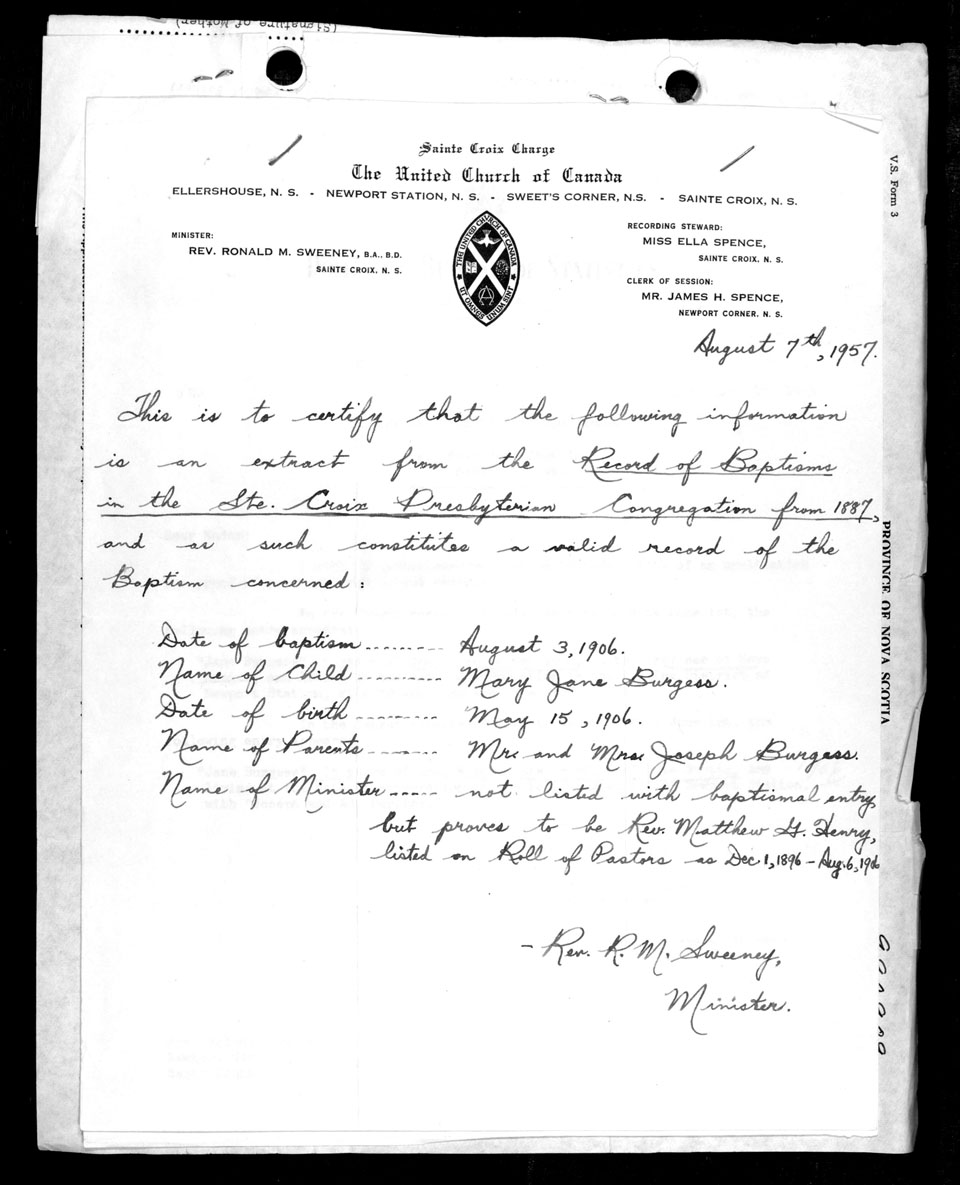 (Signature of Mother)
Sainte Croix Charge
The United Church of Canada
ELLERSHOUSE, N. S. - NEWPORT STATION, N. S. - SWEET'S CORNER, N.S. - SAINTE CROIX, N. S.
MINISTER:
REV. RONALD M. SWEENEY, B.A., B.D.
SAINTE CROIX, N. S.
THE UNITED CHURCH OF CANADA
UT OMNES UNUM SINT
RECORDING STEWARD:
MISS ELLA SPENCE,
SAINTE CROIX, N. S.
CLERK OF SESSION:
MR. JAMES H. SPENCE,
NEWPORT CORNER, N. S.
August 7th, 1957.
This is to certify that the following information
is an extract from the Record of Baptisms
in the Ste. Croix Presbyterian Congregation from 1887,
and as such constitutes a valid record of the
Baptism concerned:
Date of baptism ........ August 3, 1906.
Name of Child ......... Mary Jane Burgess.
Date of birth ......... May 15, 1906.
Name of Parents ....... Mr. and Mrs. Joseph Burgess.
Name of Minister ..... not listed with baptismal entry
but proves to be Rev. Matthew G. Henry,
listed on Roll of Pastors as Dec 1, 1896 - Aug. 6, 1906
- Rev. R. M. Sweeney,
Minister.
V.S. Form 3
PROVINCE OF NOVA SCOTIA